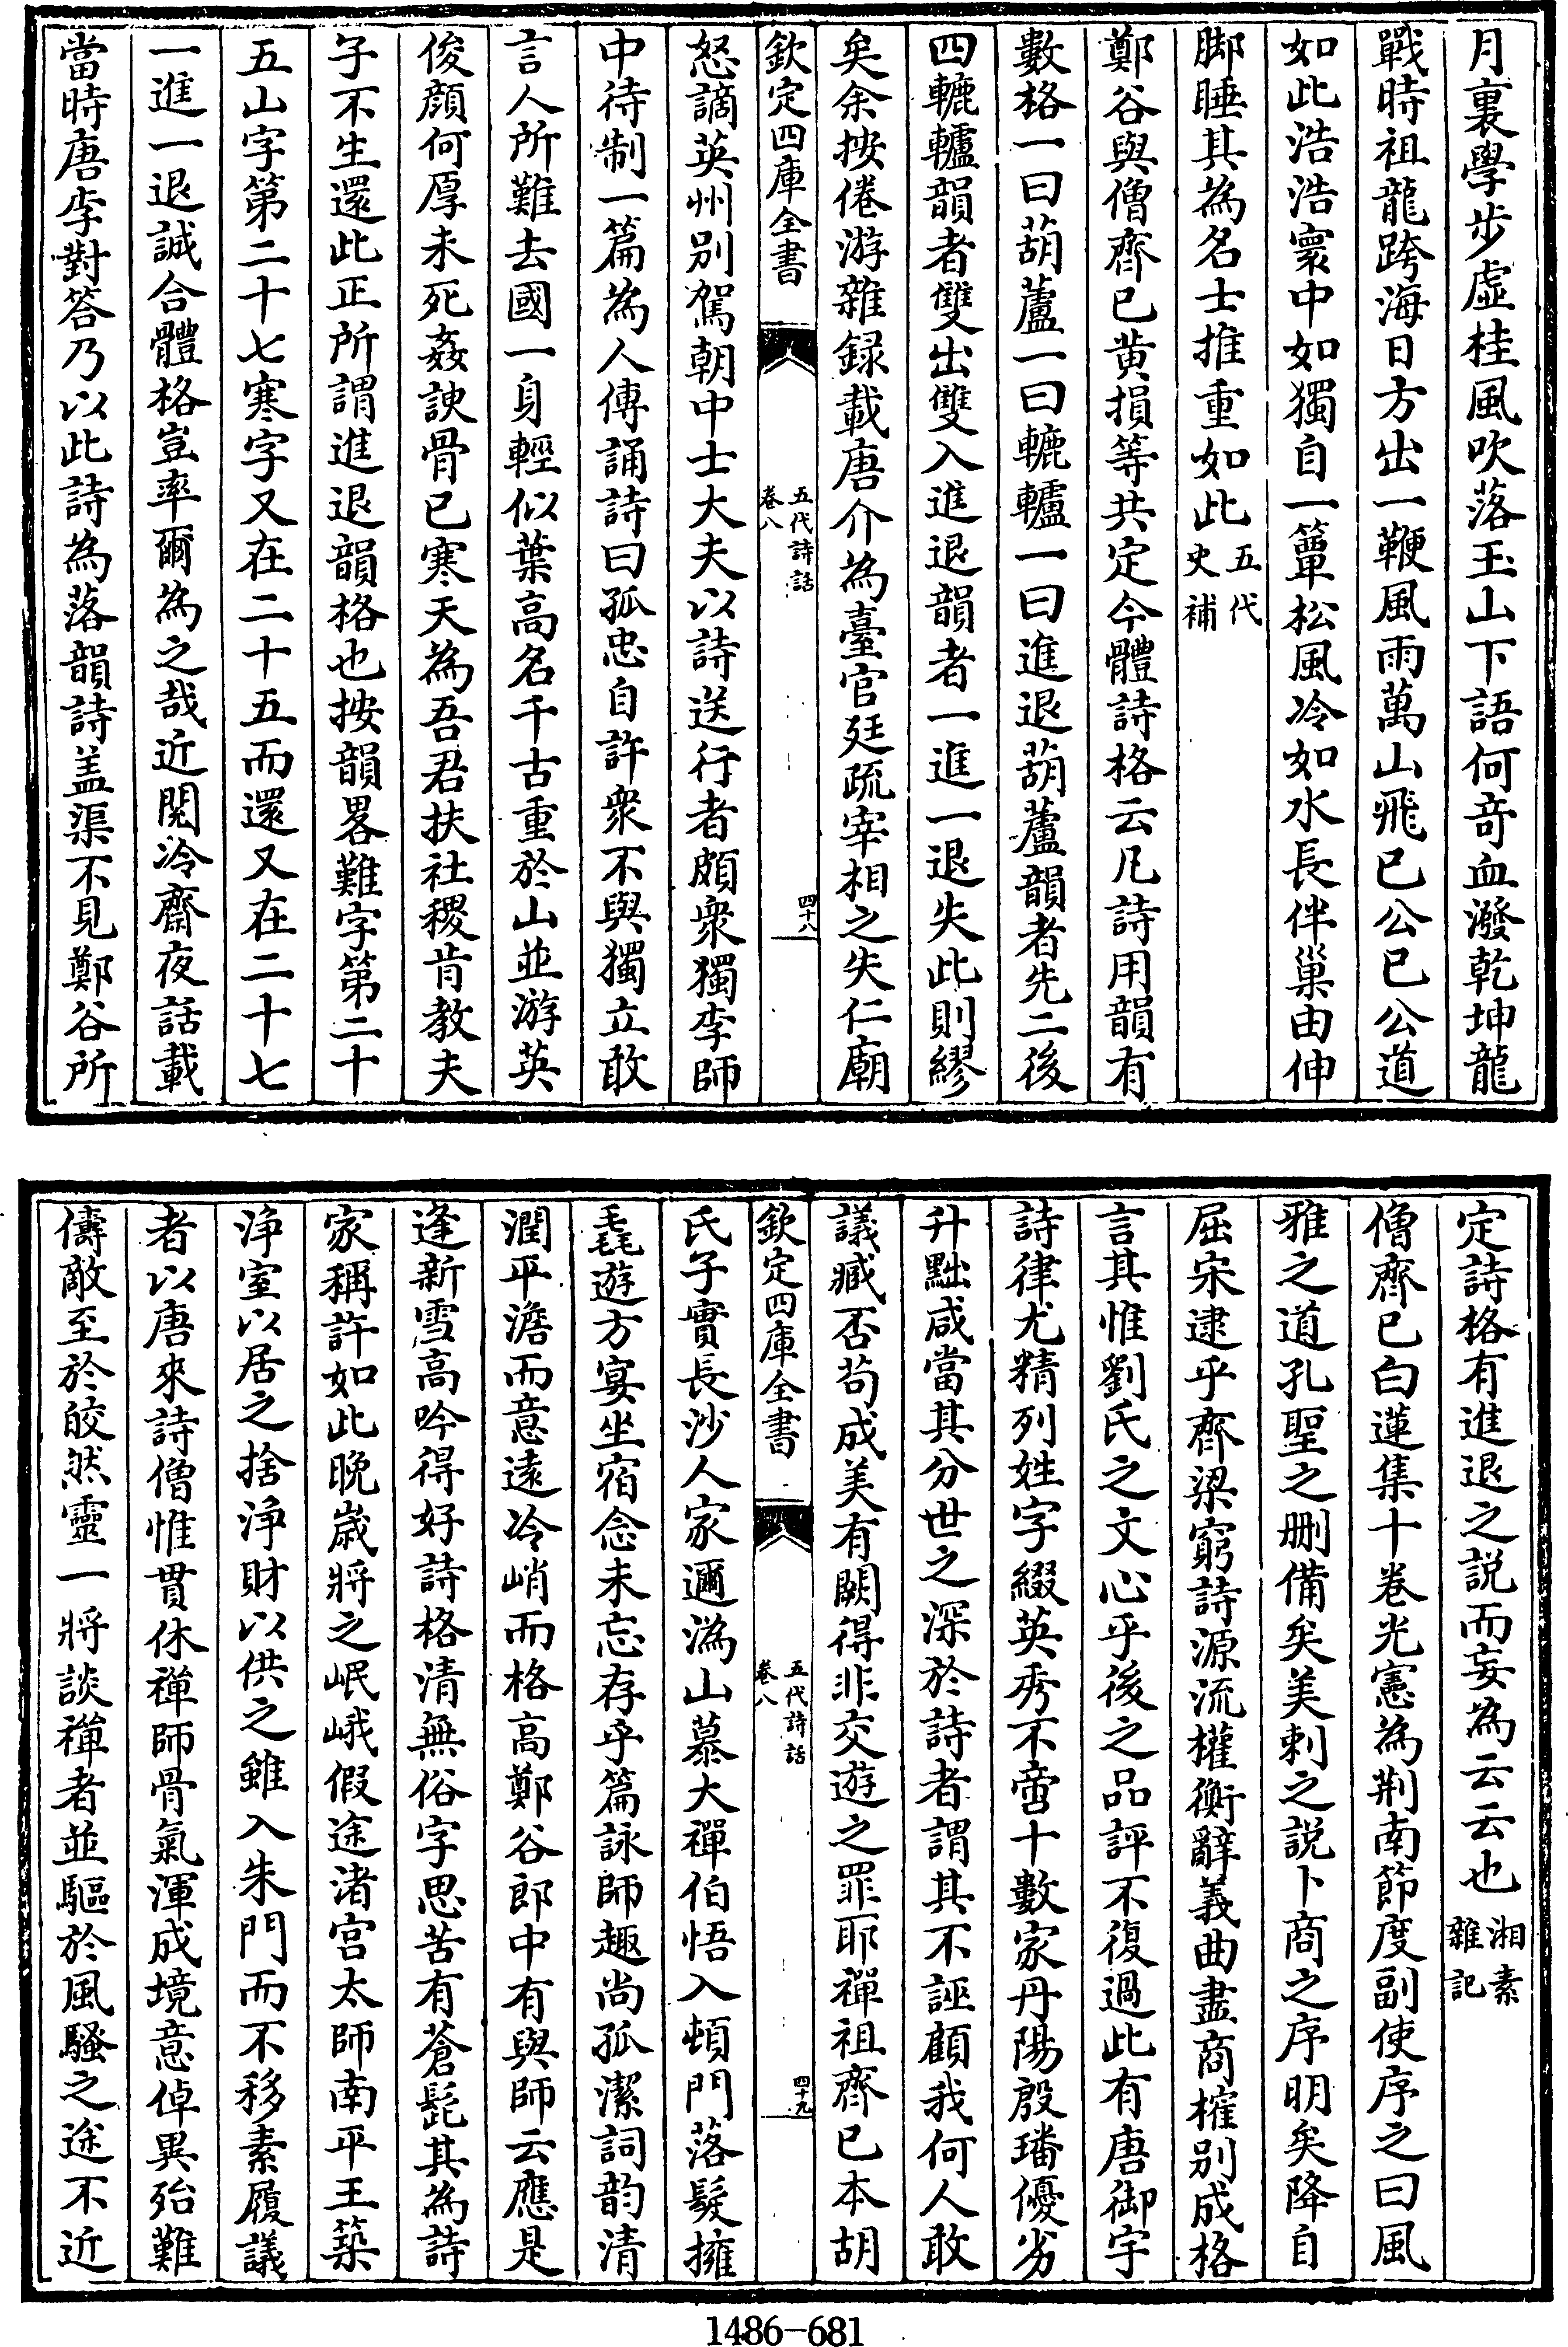 月裏學步虛桂風吹落玉山下語何竒血潑乾坤龍
戰時祖龍跨海日方出一鞭風雨萬山飛已公已公道
如此浩浩寰中如獨自一簟松風冷如水長伴巢由伸
脚睡其為名士推重如此五代史補
鄭谷與僧齊已黄損等共定今體詩格云凡詩用韻有
數格一曰葫蘆一曰轆轤一曰進退葫蘆韻者先二後
四轆轤韻者雙出雙入進退韻者一進一退失此則繆
矣余按倦游雜録載唐介為臺官廷疏宰相之失仁廟
欽定四庫全書
五代詩話
卷八
四十八
怒謫英州别駕朝中士大夫以詩送行者頗衆獨李師
中待制一篇為人傳誦詩曰孤忠自許衆不與獨立敢
言人所難去國一身輕似葉高名千古重於山並游英
俊顔何厚未死姦諛骨已寒天為吾君扶社稷肯教夫
子不生還此正所謂進退韻格也按韻畧難字第二十
五山字第二十七寒字又在二十五而還又在二十七
一進一退誠合體格豈率爾為之哉近閱冷齋夜話載
當時唐李對答乃以此詩為落韻詩盖渠不見鄭谷所
定詩格有進退之説而妄為云云也湘素雜記
僧齊已白蓮集十卷光憲為荆南節度副使序之曰風
雅之道孔聖之刪備矣美刺之説卜商之序明矣降自
屈宋逮乎齊梁窮詩源流權衡辭義曲盡商搉别成格
言其惟劉氏之文心乎後之品評不復過此有唐御宇
詩律尤精列姓字綴英秀不啻十數家丹陽殷璠優劣
升黜咸當其分世之深於詩者謂其不誣顧我何人敢
議臧否茍成美有闕得非交遊之罪耶禪祖齊已本胡
欽定四庫全書
五代詩話
卷八
四十九
氏子實長沙人家邇溈山慕大禪伯悟入頓門落髮擁
毳遊方宴坐宿念未忘存乎篇詠師趣尚孤潔詞韵清
潤平澹而意遠冷峭而格高鄭谷郎中有與師云應是
逢新雪高吟得好詩格清無俗字思苦有蒼髭其為詩
家稱許如此晚歳將之岷峨假途渚宫太師南平王築
浄室以居之捨浄財以供之雖入朱門而不移素履議
者以唐來詩僧惟貫休禪師骨氣渾成境意倬異殆難
儔敵至於皎然靈一將談禪者並驅於風騷之途不近
1486-681